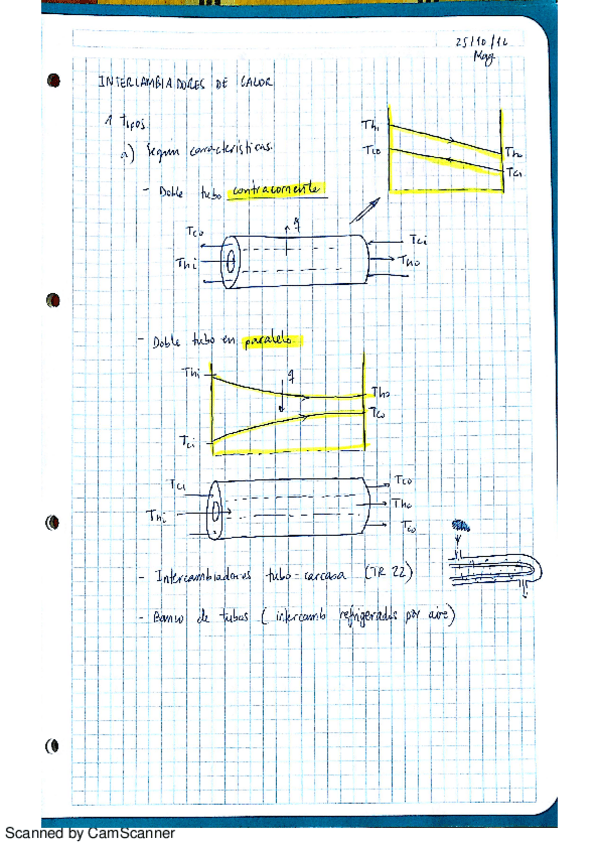 25/10/12
May
INTERCAMBIADORES DE CALOR
1 tipos
a) Según características.
- Doble tubo contracorriente
Thi
Tco
Tho
Tci
Tco
Thi
q
Tci
Tho
- Doble tubo en paralelo.
Thi
q
Tho
Tco
Tci
Tci
Thi
Tco
Tho
Tco
- Intercambiadores tubo-carcasa (TR 22)
- Banco de tubos ( intercamb refrigerados por aire)
Scanned by CamScanner